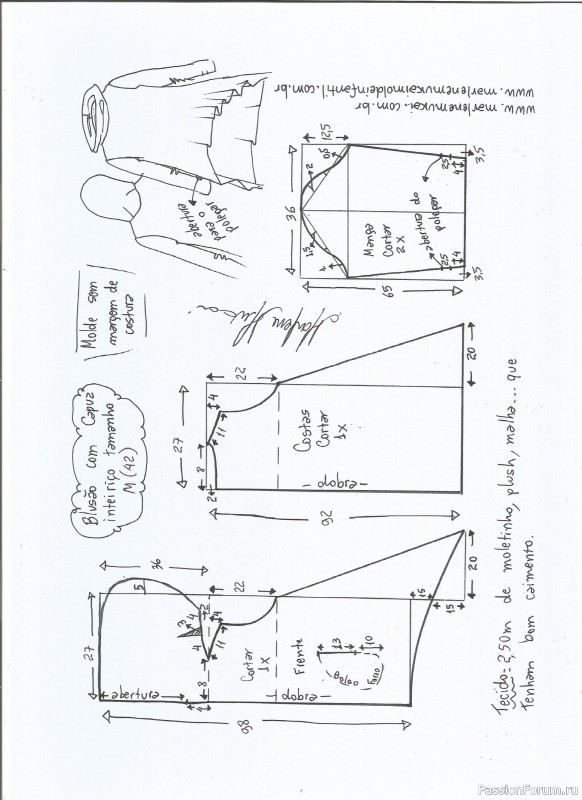 Blusão com Capuz
inteiriço tamanho
M (42)
Molde sem
margem de
costura
abertura
para o
polegar
www.marlenemukai.com.br
www.marlenemukaimoldeinfantil.com.br
36
12,5
0,5
2
1,5
2
Manga
Cortar
2x
abertura do
polegar
2,5
4
2,5
4
3,5
3,5
65
22
4
11
8
2
27
Costas
Cortar
1x
dobra
92
20
36
5
22
3
4
4
2
4
11
8
27
abertura
4
Cortar
1x
Frente
13
10
bolso
Forro
dobra
98
15
15
20
Tecido = 2,50m de moletinho, plush, malha... que
tenham bom caimento.
PassionForum.ru